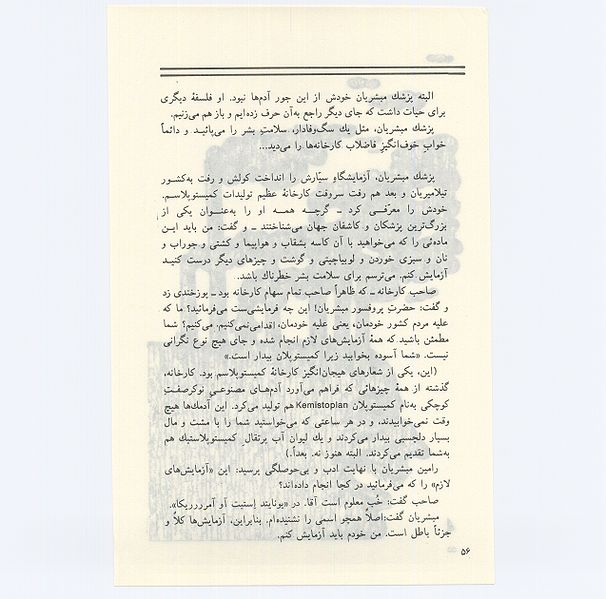 البته پزشك مبشریان خودش از این جور آدم‌ها نبود. او فلسفهٔ دیگری
برای حیات داشت که جای دیگر راجع به‌آن حرف زده‌ایم و باز هم می‌زنیم.
پزشك مبشریان، مثل یك سگ‌وفادار، سلامتِ بشر را می‌پائید و دائماً
خواب خوف‌انگیزِ فاضلاب کارخانه‌ها را می‌دید...
پزشك مبشریان، آزمایشگاهِ سیّارش را انداخت کولش و رفت به‌کشور
تیلامیریان و بعد هم رفت سروقت کارخانهٔ عظیم تولیدات کمیستوپلاسم.
خودش را معرّفی کرد ـ گرچه همه او را به‌عنوان یکی از
بزرگ‌ترین پزشکان و کاشفان جهان می‌شناختند ـ و گفت: من باید این
ماده‌ئی را که می‌خواهید با آن کاسه بشقاب و هواپیما و کشتی و جوراب و
نان و سبزی خوردن و لوبیاچیتی و گوشت و چیزهای دیگر درست کنید
آزمایش کنم. می‌ترسم برای سلامت بشر خطرناك باشد.
صاحب کارخانه ـ که ظاهراً صاحب تمام سهام کارخانه بود ـ پوزخندی زد
و گفت: حضرتِ پروفسور مبشریان! این چه فرمایشی‌ست می‌فرمائید؟ ما که
علیه مردم کشور خودمان، یعنی علیه خودمان، اقدامی‌نمی‌کنیم. می‌کنیم؟ شما
مطمئن باشید که همهٔ آزمایش‌های لازم انجام شده و جای هیچ نوع نگرانی
نیست. «شما آسوده بخوابید زیرا کمیستوپلان بیدار است.»
(این، یکی از شعارهای هیجان‌انگیز کارخانهٔ کمیستوپلاسم بود. کارخانه،
گذشته از همهٔ چیزهائی که فراهم می‌آورد آدم‌های مصنوعی نوکرصفتِ
کوچکی به‌نام کمیستوپلان Kemistoplan هم تولید می‌کرد. این آدمك‌ها هیچ
وقت نمی‌خوابیدند، و در هر ساعتی که می‌خواستید شما را با مشت و مال
بسیار دلچسبی بیدار می‌کردند و یك لیوان آب پرتقالِ کمیستوپلاستیك هم
به‌شما تقدیم می‌کردند. البته هنوز نه. بعداً.)
رامین مبشریان با نهایت ادب و بی‌حوصلگی پرسید: این «آزمایش‌های
لازم» را که می‌فرمائید در کجا انجام داده‌اند؟
صاحب گفت: خُب معلوم است آقا. در «یونایتد اِستیت آو آمررررریکا».
مبشریان گفت:اصلاً همچو اسمی را نشنیده‌ام. بنابراین، آزمایش‌ها کلاً و
جزئاً باطل است. من خودم باید آزمایش کنم.
۵۶